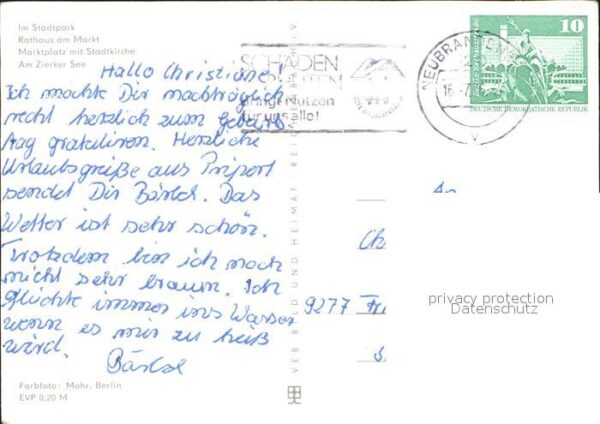 Im Stadtpark
Rathaus am Markt
Marktplatz mit Stadtkirche
Am Zierker See
Hallo Christiane!
Ich möchte Dir nachträglich
recht herzlich zum Geburts-
tag gratulieren. Herzliche
Urlaubsgrüße aus Priport
sendet Dir Bärbel. Das
Wetter ist sehr schön.
Trotzdem bin ich noch
nicht sehr braun. Ich
flüchte immer ins Wasser
wenn es mir zu heiß
wird.
Bärbel
Farbfoto: Mohr, Berlin
EVP 0,20 M
VEB BILD UND HEIMAT REICHENBACH I V
SCHÄDEN
bringt Nutzen
für uns alle!
NEUBRANDENB
10
DEUTSCHE DEMOKRATISCHE REPUBLIK
An
Ch
9277
privacy protection
Datenschutz